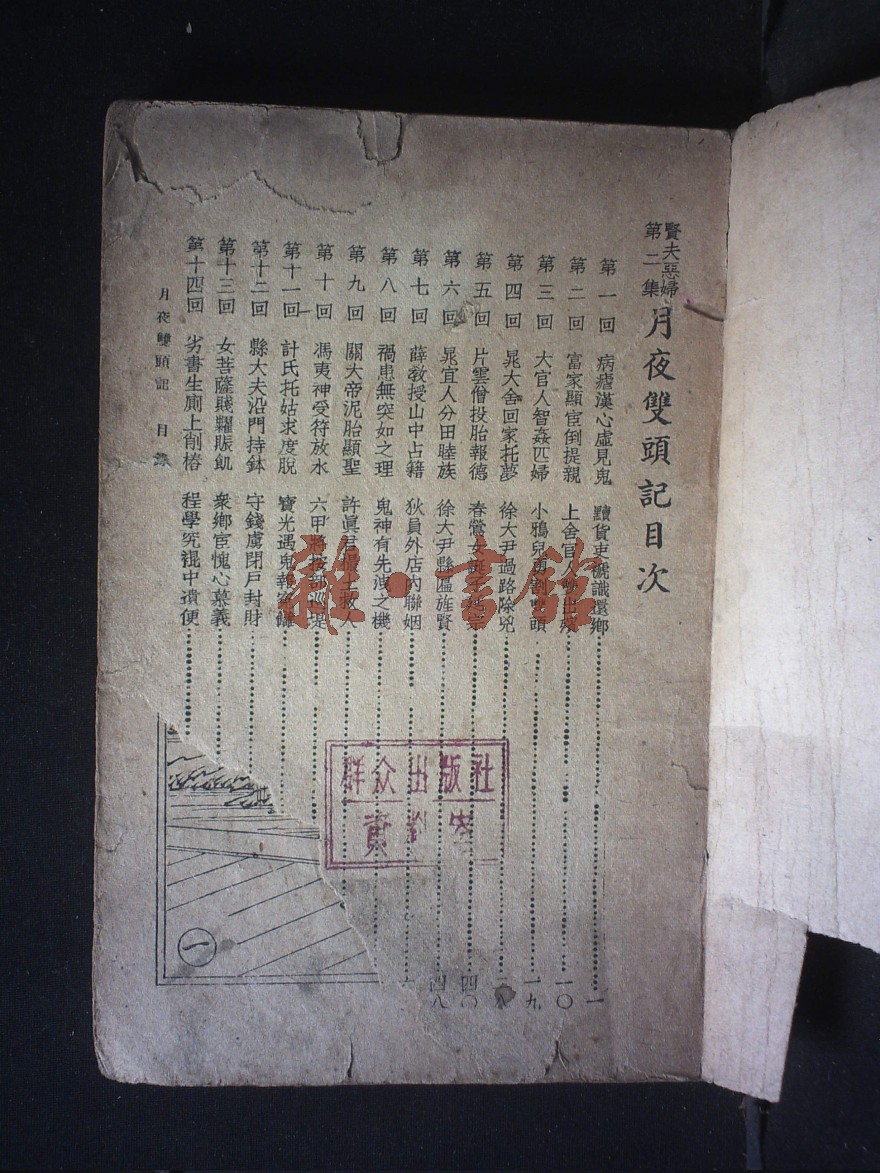 賢夫惡婦
第二集
月夜雙頭記目次
第一回 病瘧漢心虛見鬼 黷貨吏褫識還鄉 一
第二回 富家顯宦倒提親 上舍官人 一〇
第三回 大官人智姦匹婦 小鴉兒勇割雙頭 一九
第四回 晁大舍回家托夢 徐大尹過路除兇
第五回 片雲僧投胎報德 春鶯女 四〇
第六回 晁宜人分田睦族 徐大尹縣匾旌賢 四八
第七回 薛教授山中占籍 狄員外店內聯姻
第八回 禍患無突如之理 鬼神有先洩之機
第九回 關大帝泥胎顯聖 許眞君撮土救人
第十回 馮夷神受符放水 六甲將按部巡堤
第十一回 計氏托姑求度脫 寶光遇鬼報冤讎
第十二回 縣大夫沿門持鉢 守錢虜閉戶封財
第十三回 女菩薩賤糶賑飢 衆鄉宦愧心慕義
第十四回 劣書生廁上削樁 程學究裩中遺便
月夜雙頭記 目錄
一
群众出版社
資料室
雜·書館